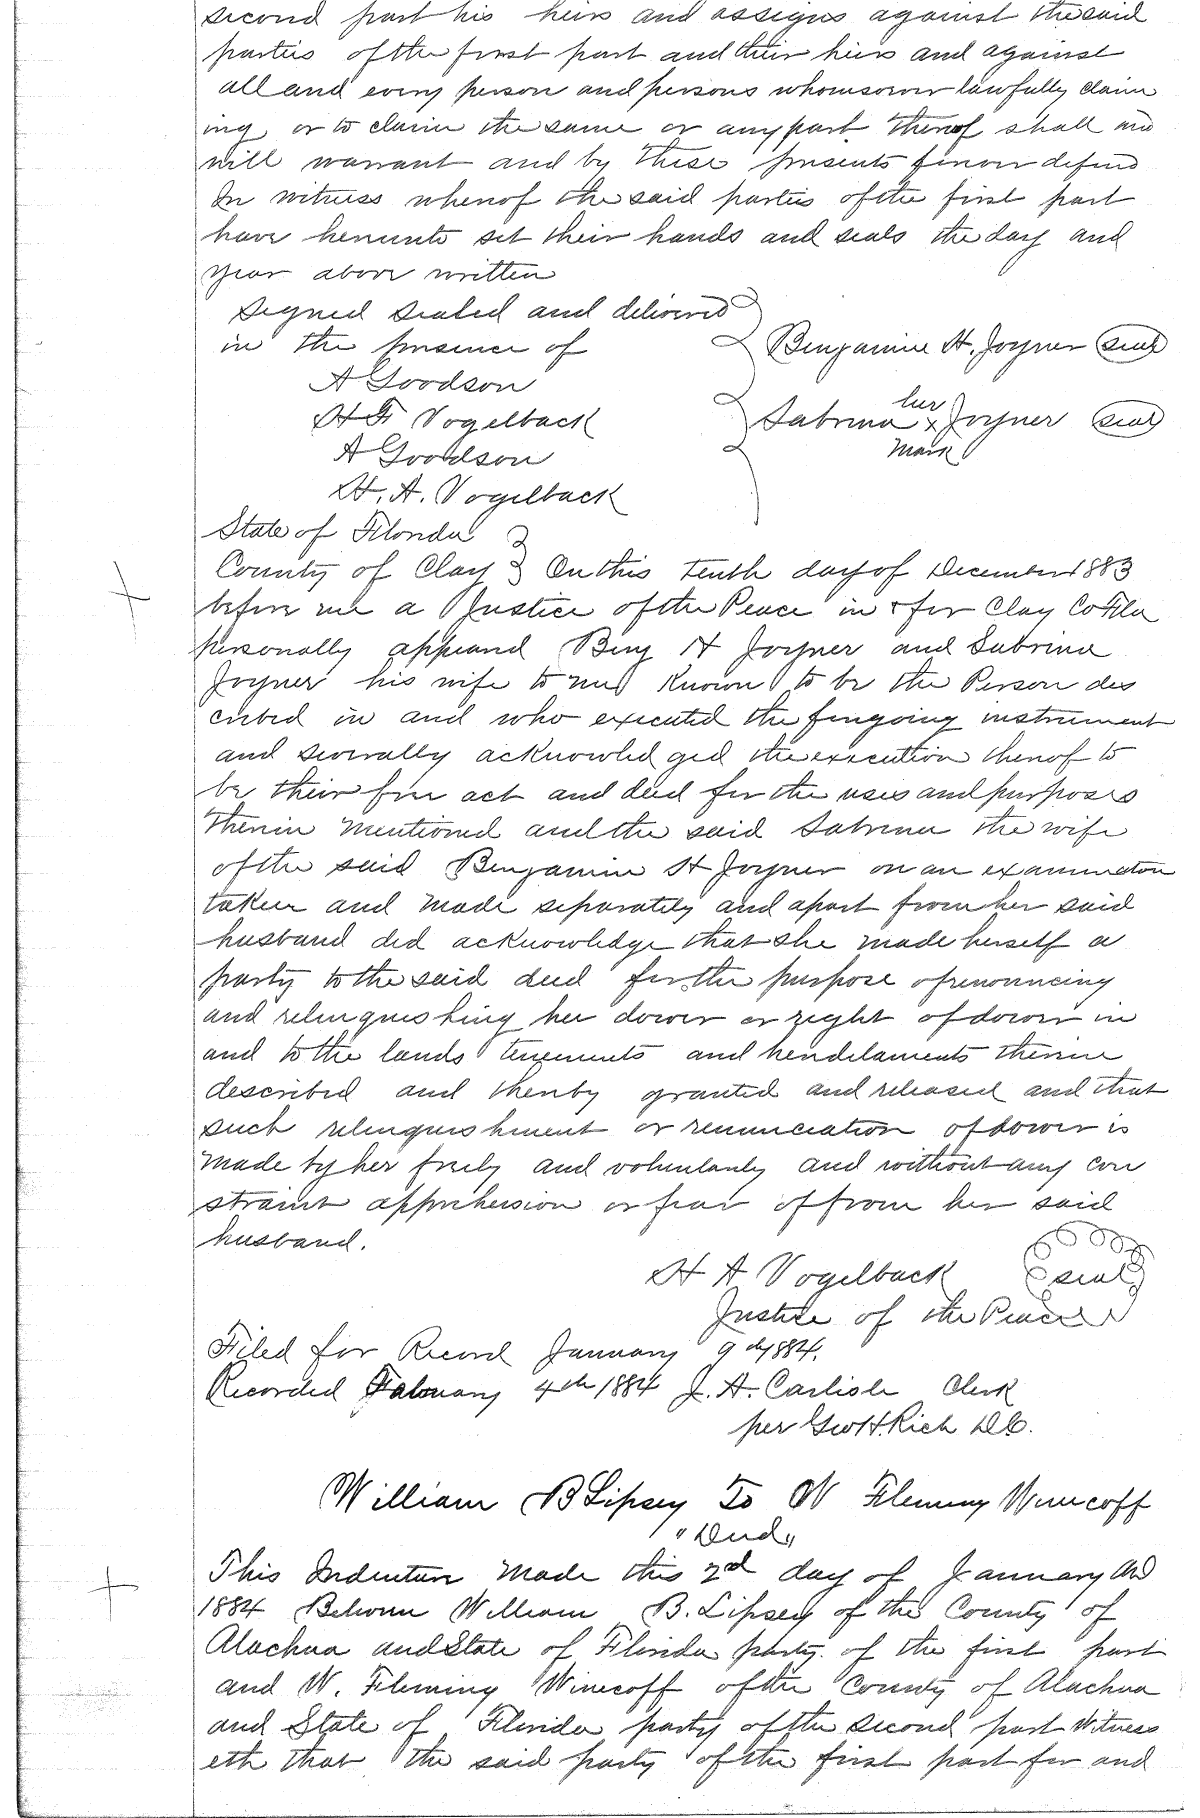 second part his heirs and assigns against the said
parties of the first part and their heirs and against
all and every person and persons whomsoever lawfully claim
ing or to claim the same or any part thereof shall and
will warrant and by these presents forever defend
In witness whereof the said parties of the first part
have hereunto set their hands and seals the day and
year above written
Signed sealed and delivered
in the presence of
Benjamine H. Joyner seal
A Goodson
her
H F Vogelback
Sabrina x Joyner seal
mark
A Goodson
H. A. Vogelback
State of Florida
County of Clay } On this tenth day of December 1883
before me a Justice of the Peace in & for Clay Co Fla
personally appeard Benj H Joyner and Sabrina
Joyner his wife to me known to be the Person des
cribed in and who executed the foregoing instrument
and severally acknowledged the execution thereof to
be their free act and deed for the uses and purposes
therein mentioned and the said Sabrina the wife
of the said Benjamin H Joyner on an examination
taken and made separately and apart from her said
husband did acknowledge that she made herself a
party to the said deed for the purpose of renouncing
and relinquishing her dower or right of dower in
and to the lands tenements and heridelaments therein
described and thereby granted and released and that
such relinquishment or renunciation of dower is
made by her freely and voluntarily and without any con
straint apprehension or fear of from her said
husband.
H A Vogelback seal
Justice of the Peace
Filed for Record January 9th 1884.
Recorded February 4th 1884 J. A. Carlisle Clerk
per Geo H. Rich D.C.
William B Lipsey To W Fleming Winecoff
"Deed"
This Indenture made this 2nd day of January AD
1884 Between William B. Lipsey of the County of
Alachua and State of Florida party of the first part
and W. Fleming Winecoff of the County of Alachua
and State of Florida party of the second part Witness
eth that the said party of the first part for and